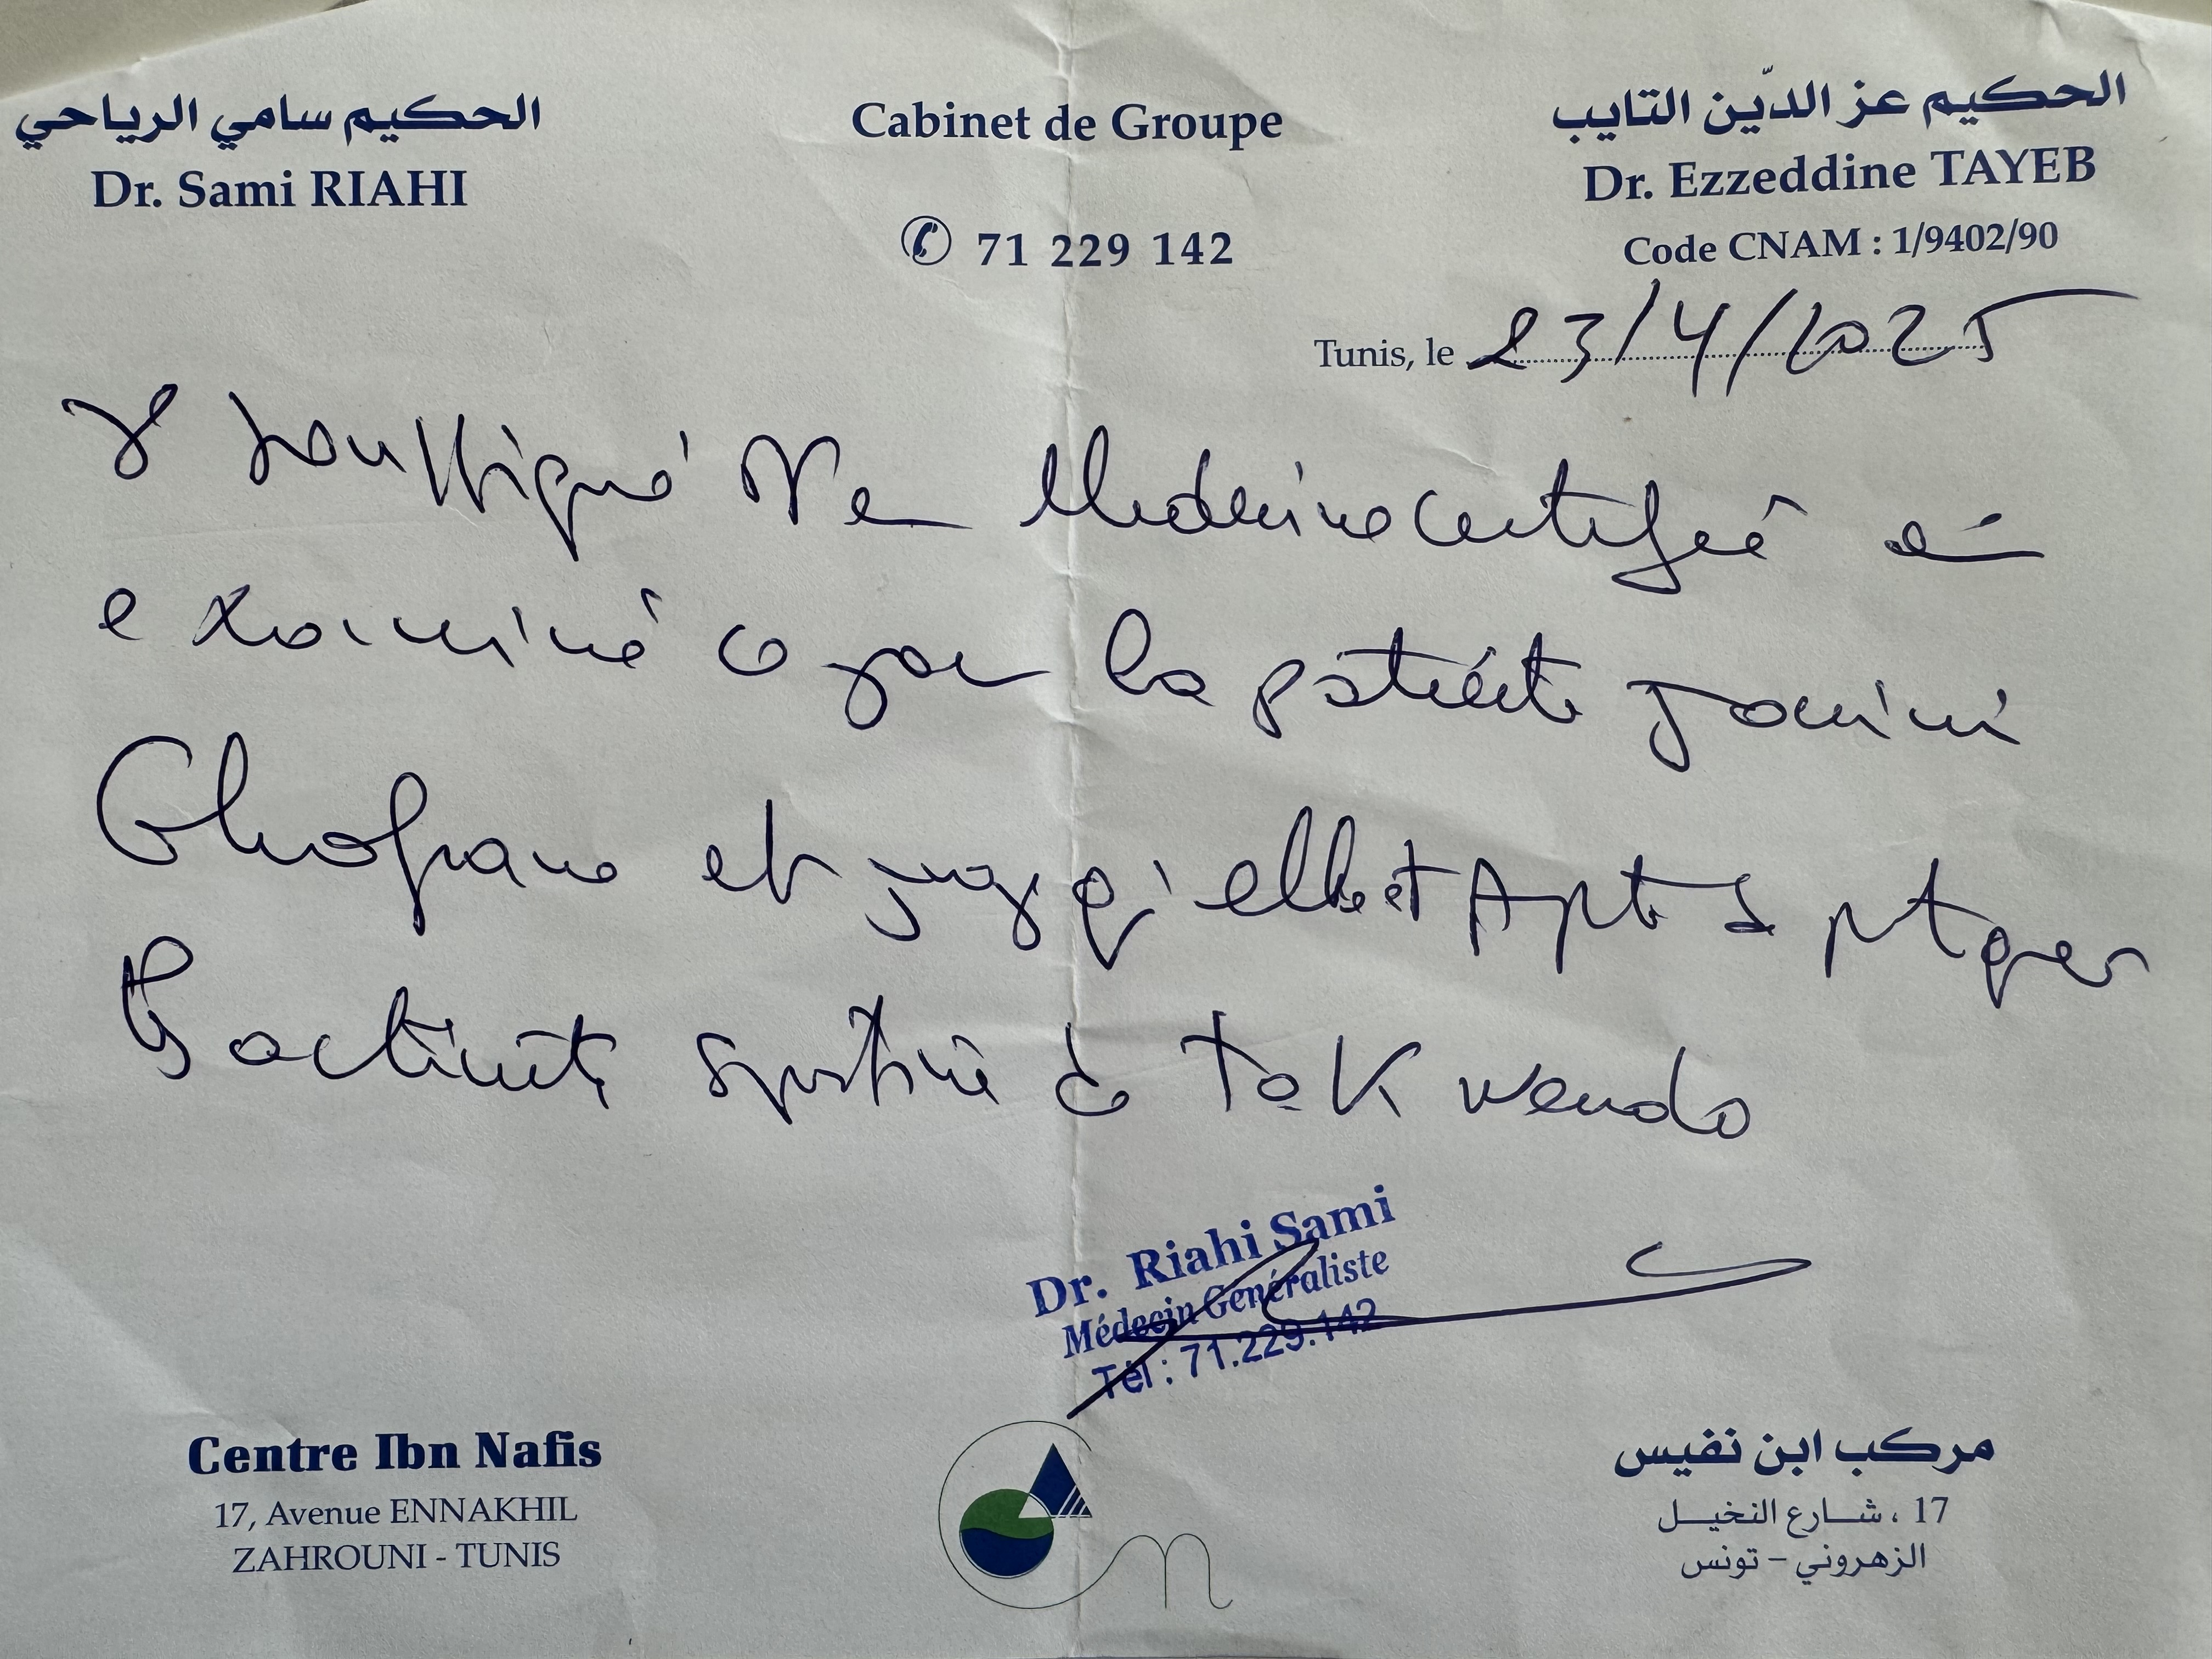 الحكيم سامي الرياحي
Dr. Sami RIAHI
Cabinet de Groupe
71 229 142
الحكيم عز الدّين التايب
Dr. Ezzeddine TAYEB
Code CNAM : 1/9402/90
Tunis, le 23/4/2025
Je soussigné Dr en Medecine certifie
examiné ce jour la patiente
Ghofrane et juge qu'elle est Apte à
l'activité sportive de Tekwendo
Dr. Riahi Sami
Médecin Généraliste
Tél : 71.229.142
Centre Ibn Nafis
17, Avenue ENNAKHIL
ZAHROUNI - TUNIS
مركب ابن نفيس
17 ، شارع النخيل
الزهروني - تونس